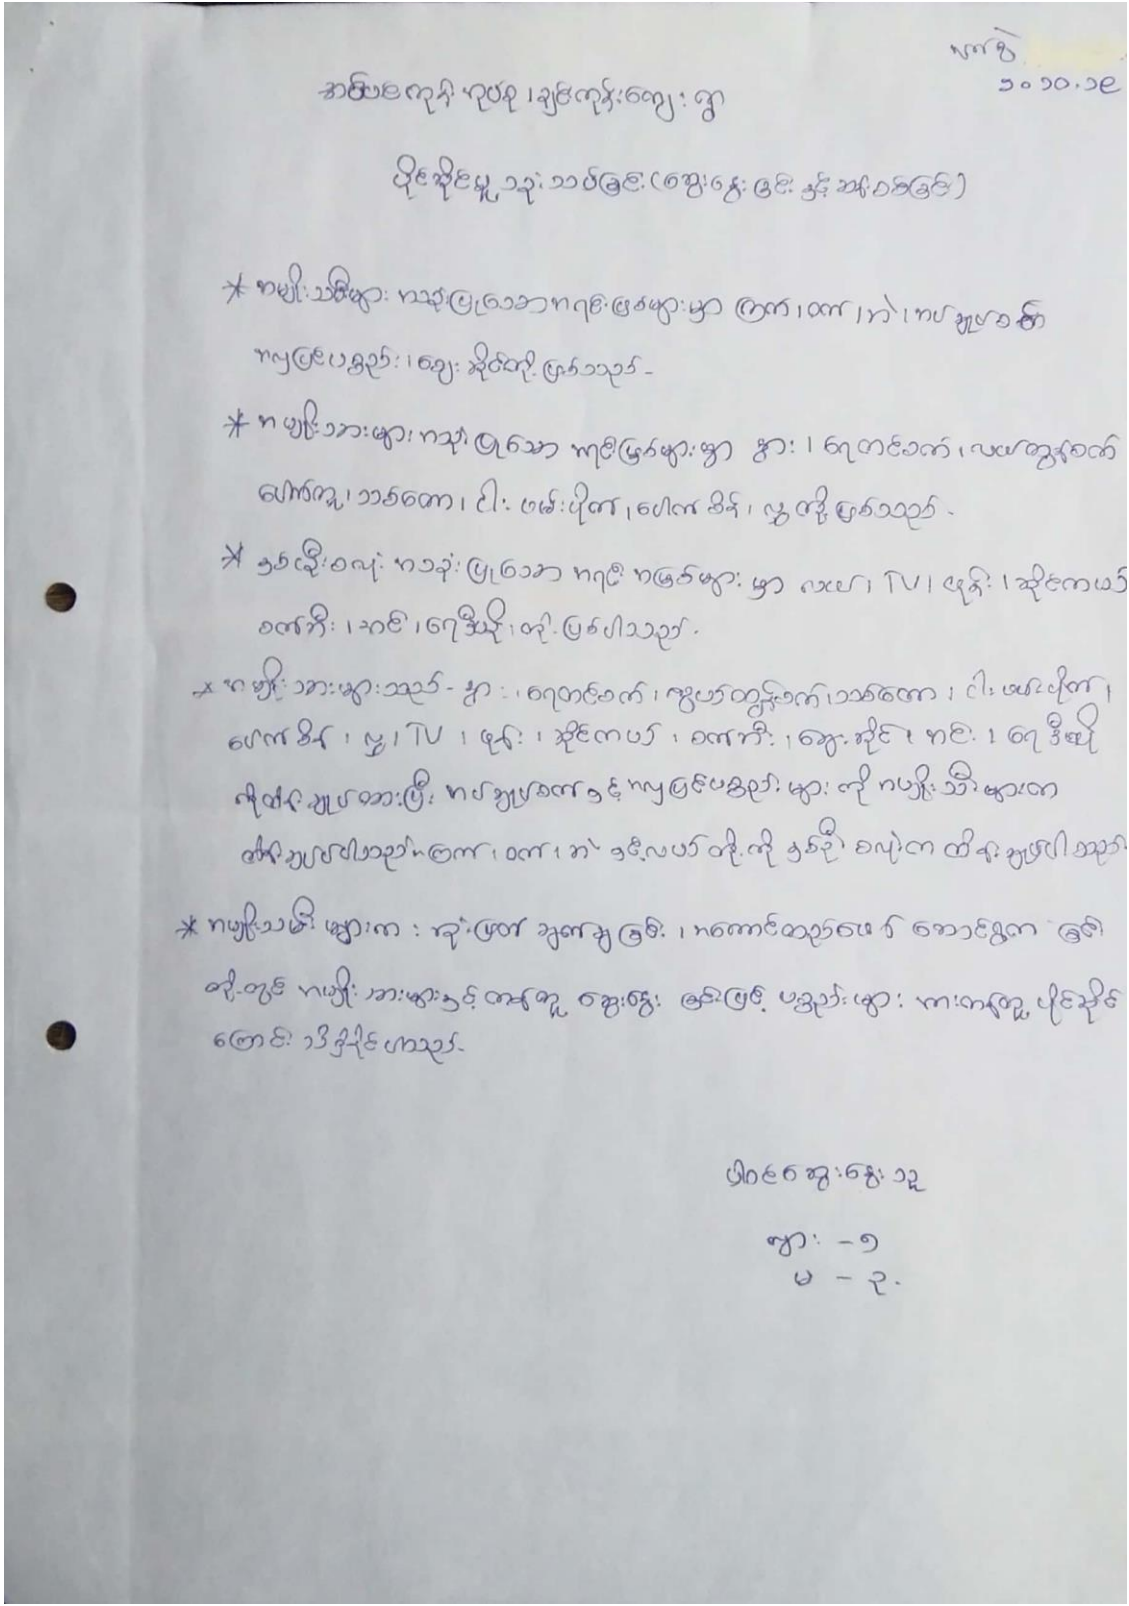 ရက်စွဲ
၁၀.၁၀.၁၉
အုပ်စု၊ ချင်းကုန်းကျေးရွာ
ပိုင်ဆိုင်မှု သုံးသပ်ခြင်း (ဆွေးနွေးခြင်းနှင့် ဆန်းစစ်ခြင်း)
* အမျိုးသမီးများ အသုံးပြုသောအရင်းမြစ်များမှာ ကြက်၊ ဝက်၊ ဘဲ၊ အပ်ချုပ်စက်
အလှပြင်ပစ္စည်း၊ ဈေးဆိုင်တို့ဖြစ်သည်-
* အမျိုးသားများအသုံးပြုသော အရင်းမြစ်များမှာ နွား၊ ရေတင်စက်၊ လယ်ထွန်စက်
ပေါက်တူး၊ သစ်တော၊ ငါးဖမ်းပိုက်၊ ပေါက်ချိန်း၊ လွှတို့ဖြစ်သည်.
* နှစ်ဦးစလုံး အသုံးပြုသော အရင်းအမြစ်များမှာ လယ်၊ TV၊ ဖုန်း၊ ဆိုင်ကယ်
စက်ဘီး၊ အင်း၊ ရေဒီယို၊ တို့ဖြစ်ပါသည်.
* အမျိုးသားများသည်- နွား၊ ရေတင်စက်၊ လယ်ထွန်စက်၊ သစ်တော၊ ငါးဖမ်းပိုက်၊
ပေါက်ချိန်း၊ လွှ၊ TV၊ ဖုန်း၊ ဆိုင်ကယ်၊ စက်ဘီး၊ ဈေးဆိုင်၊ အင်း၊ ရေဒီယို
ကိုထိန်းချုပ်ထားပြီး အပ်ချုပ်စက်နှင့် အလှပြင်ပစ္စည်းများကို အမျိုးသမီးများက
ထိန်းချုပ်ပါသည်။ ကြက်၊ ဝက်၊ ဘဲ နှင့်လယ်တို့ကို နှစ်ဦးစလုံးက ထိန်းချုပ်ပါသည်.
* အမျိုးသမီးများက ဆုံးဖြတ်ချက်ချခြင်း၊ အကောင်အထည်ဖော် ဆောင်ရွက်ခြင်း
တို့တွင် အမျိုးသားများနှင့်အတူ ဆွေးနွေးခြင်းဖြင့် ပစ္စည်းများအားအတူ ပိုင်ဆိုင်
ကြောင်း သိရှိနိုင်ပါသည်.
ပါဝင်ဆွေးနွေးသူ
ကျား - ၅
မ - ၃.